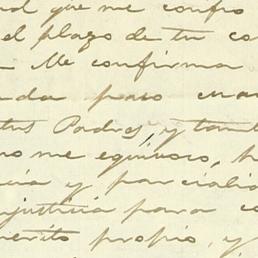 que me confio
el plazo de tu co
Me confirma
nda paso
tus Padres, y tamb
no me equivoco, h
cia y parcialid
njusticia para co
merito propio, y